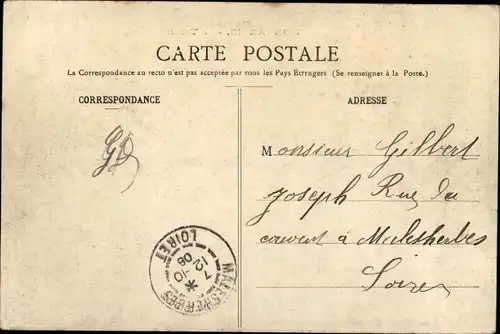 CARTE POSTALE
La Correspondance au recto n'est pas acceptée par tous les Pays Étrangers (Se renseigner à la Poste.)
CORRESPONDANCE
ADRESSE
Monsieur Gilbert
Joseph Rue du
couvent à Malesherbes
Loiret
MALESHERBES
7
12-10
06
LOIRET